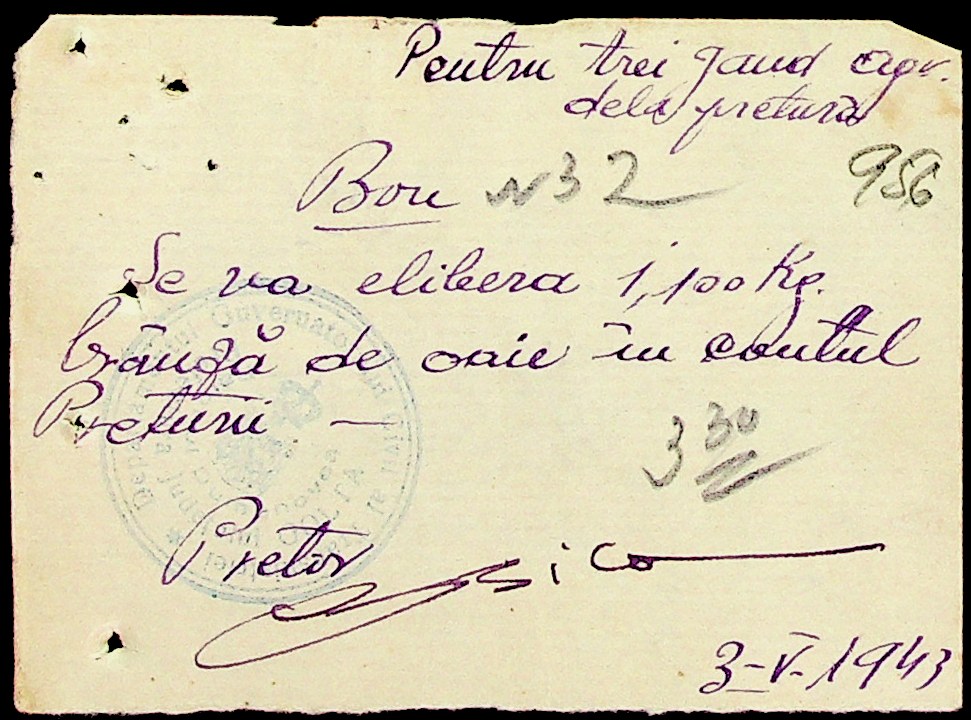 Pentru trei jand agr.
dela pretura
Bon N 32 956
Se va elibera 1,100 Kg.
brânză de oaie în contul
Preturii —
3 30
Pretor
3-V-1943